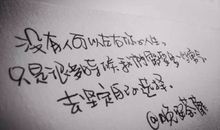 没有人可以左右你的人生,
只是很多时候我们需要一些勇气,
去坚定自己的选择.